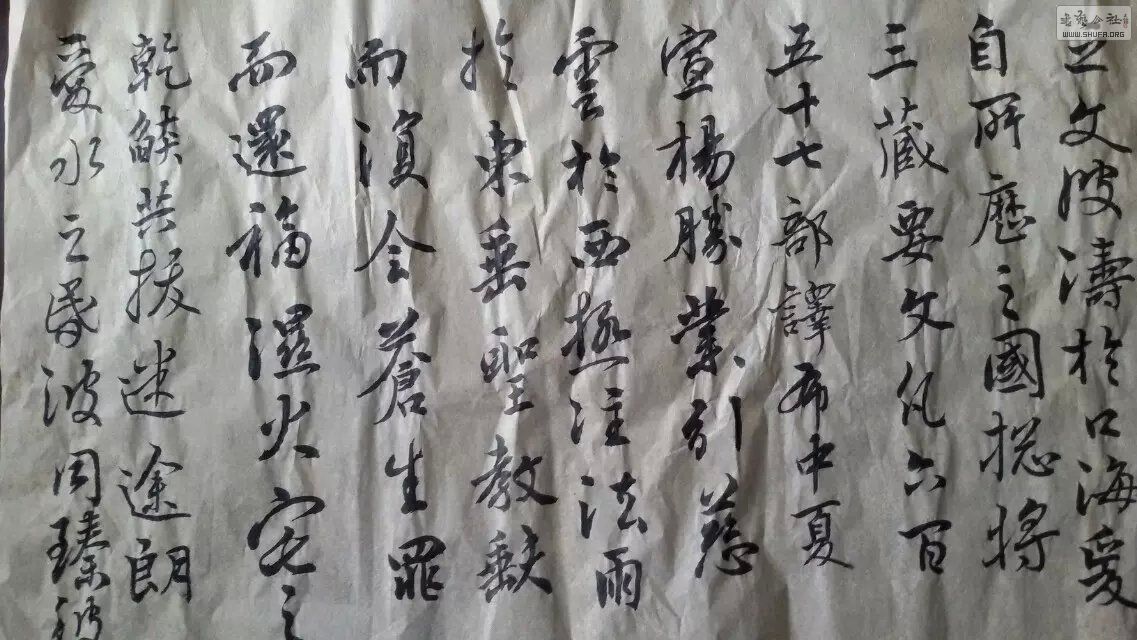 之文波濤於口海爰
自所歷之國揔將
三藏要文凡六百
五十七部譯布中夏
宣楊勝業引慈
雲於西極注法雨
於東垂聖教缺
而復全蒼生罪
而還福濕火宅之
乾燄共拔迷途朗
愛水之昏波同臻彼
书艺公社
WWW.SHUFA.ORG